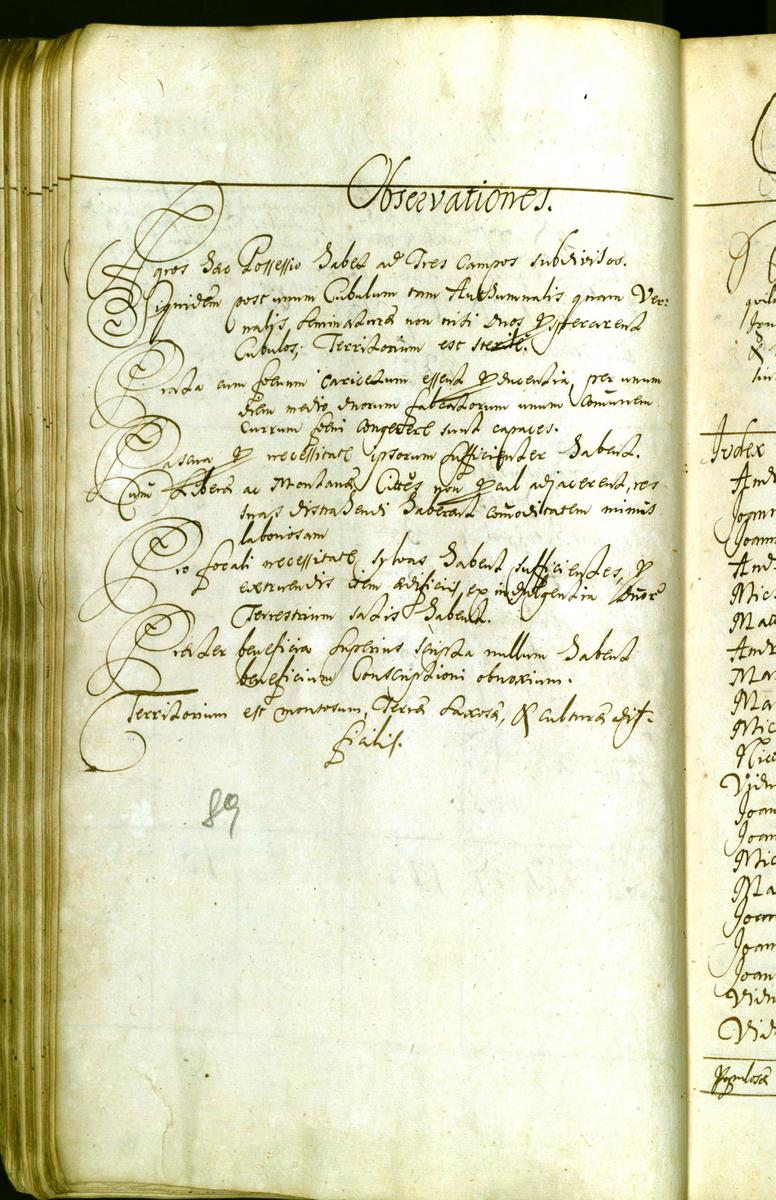 Observationes.
Agros haec Possessio habet ad Tres Campos subdivisos.
Siquidem post unum Cubulum tam Authumnalis quam Ver:
nalis, seminaturae non nisi duos Cubulos; Territorium est sterile.
Prata cum foenum caricetum essent producentia, per unum
diem medio duorum falcatorum unum comunem
currum foeni congerere sunt capaces.
Pascua pro necessitate ipsorum sufficienter habent.
Cum Liberae ac Montanae Cittes non procul adjacerent, res
suas distrahendi haberent comoditatem minus
laboriosam
Pro focali necessitate sylvas habent sufficientes, pro
extruendis item aedificiis, ex indulgentia
Terrestrium satis habent.
Praeter beneficia superius scripta nullum habent
beneficium Conscriptioni obnoxium.
Territorium est montosum, Terrae saxosae, & culturae dif-
ficilis.
89
Index
Populosa